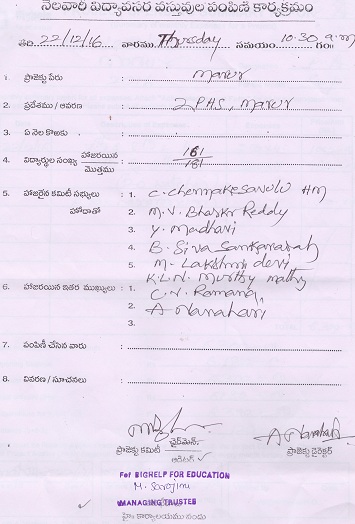 నెలవారీ విద్యావసర వస్తువుల పంపిణీ కార్యక్రమం
తేది: 22/12/16 వారము Thursday సమయం: 10.30 a.m గం॥
1. ప్రాజెక్టు పేరు : Marur
2. ప్రదేశము / ఆవరణ : ZPHS, Marur
3. ఏ నెల కొఱకు :
4. విద్యార్థుల సంఖ్య హాజరయిన / మొత్తము : 181 / 181
5. హాజరైన కమిటీ సభ్యులు హోదాతో : 1. C. Chennakesavulu HM
2. M.V. Bhaskr Reddy
3. Y. Madhavi
4. B. Siva Sankaraiah
5. M. Lakshmi devi
K.L.N. Murthy
6. హాజరయిన ఇతర ముఖ్యులు : 1. C.N. Ramana
2. A Manahari
3.
7. పంపిణీ చేసిన వారు :
8. వివరణ / సూచనలు :
ప్రాజెక్టు కమిటీ చైర్‌మెన్
A Manahari
ప్రాజెక్టు డైరెక్టర్
For BIGHELP FOR EDUCATION
M. Sarojini
MANAGING TRUSTEE
కార్యాలయము నందు